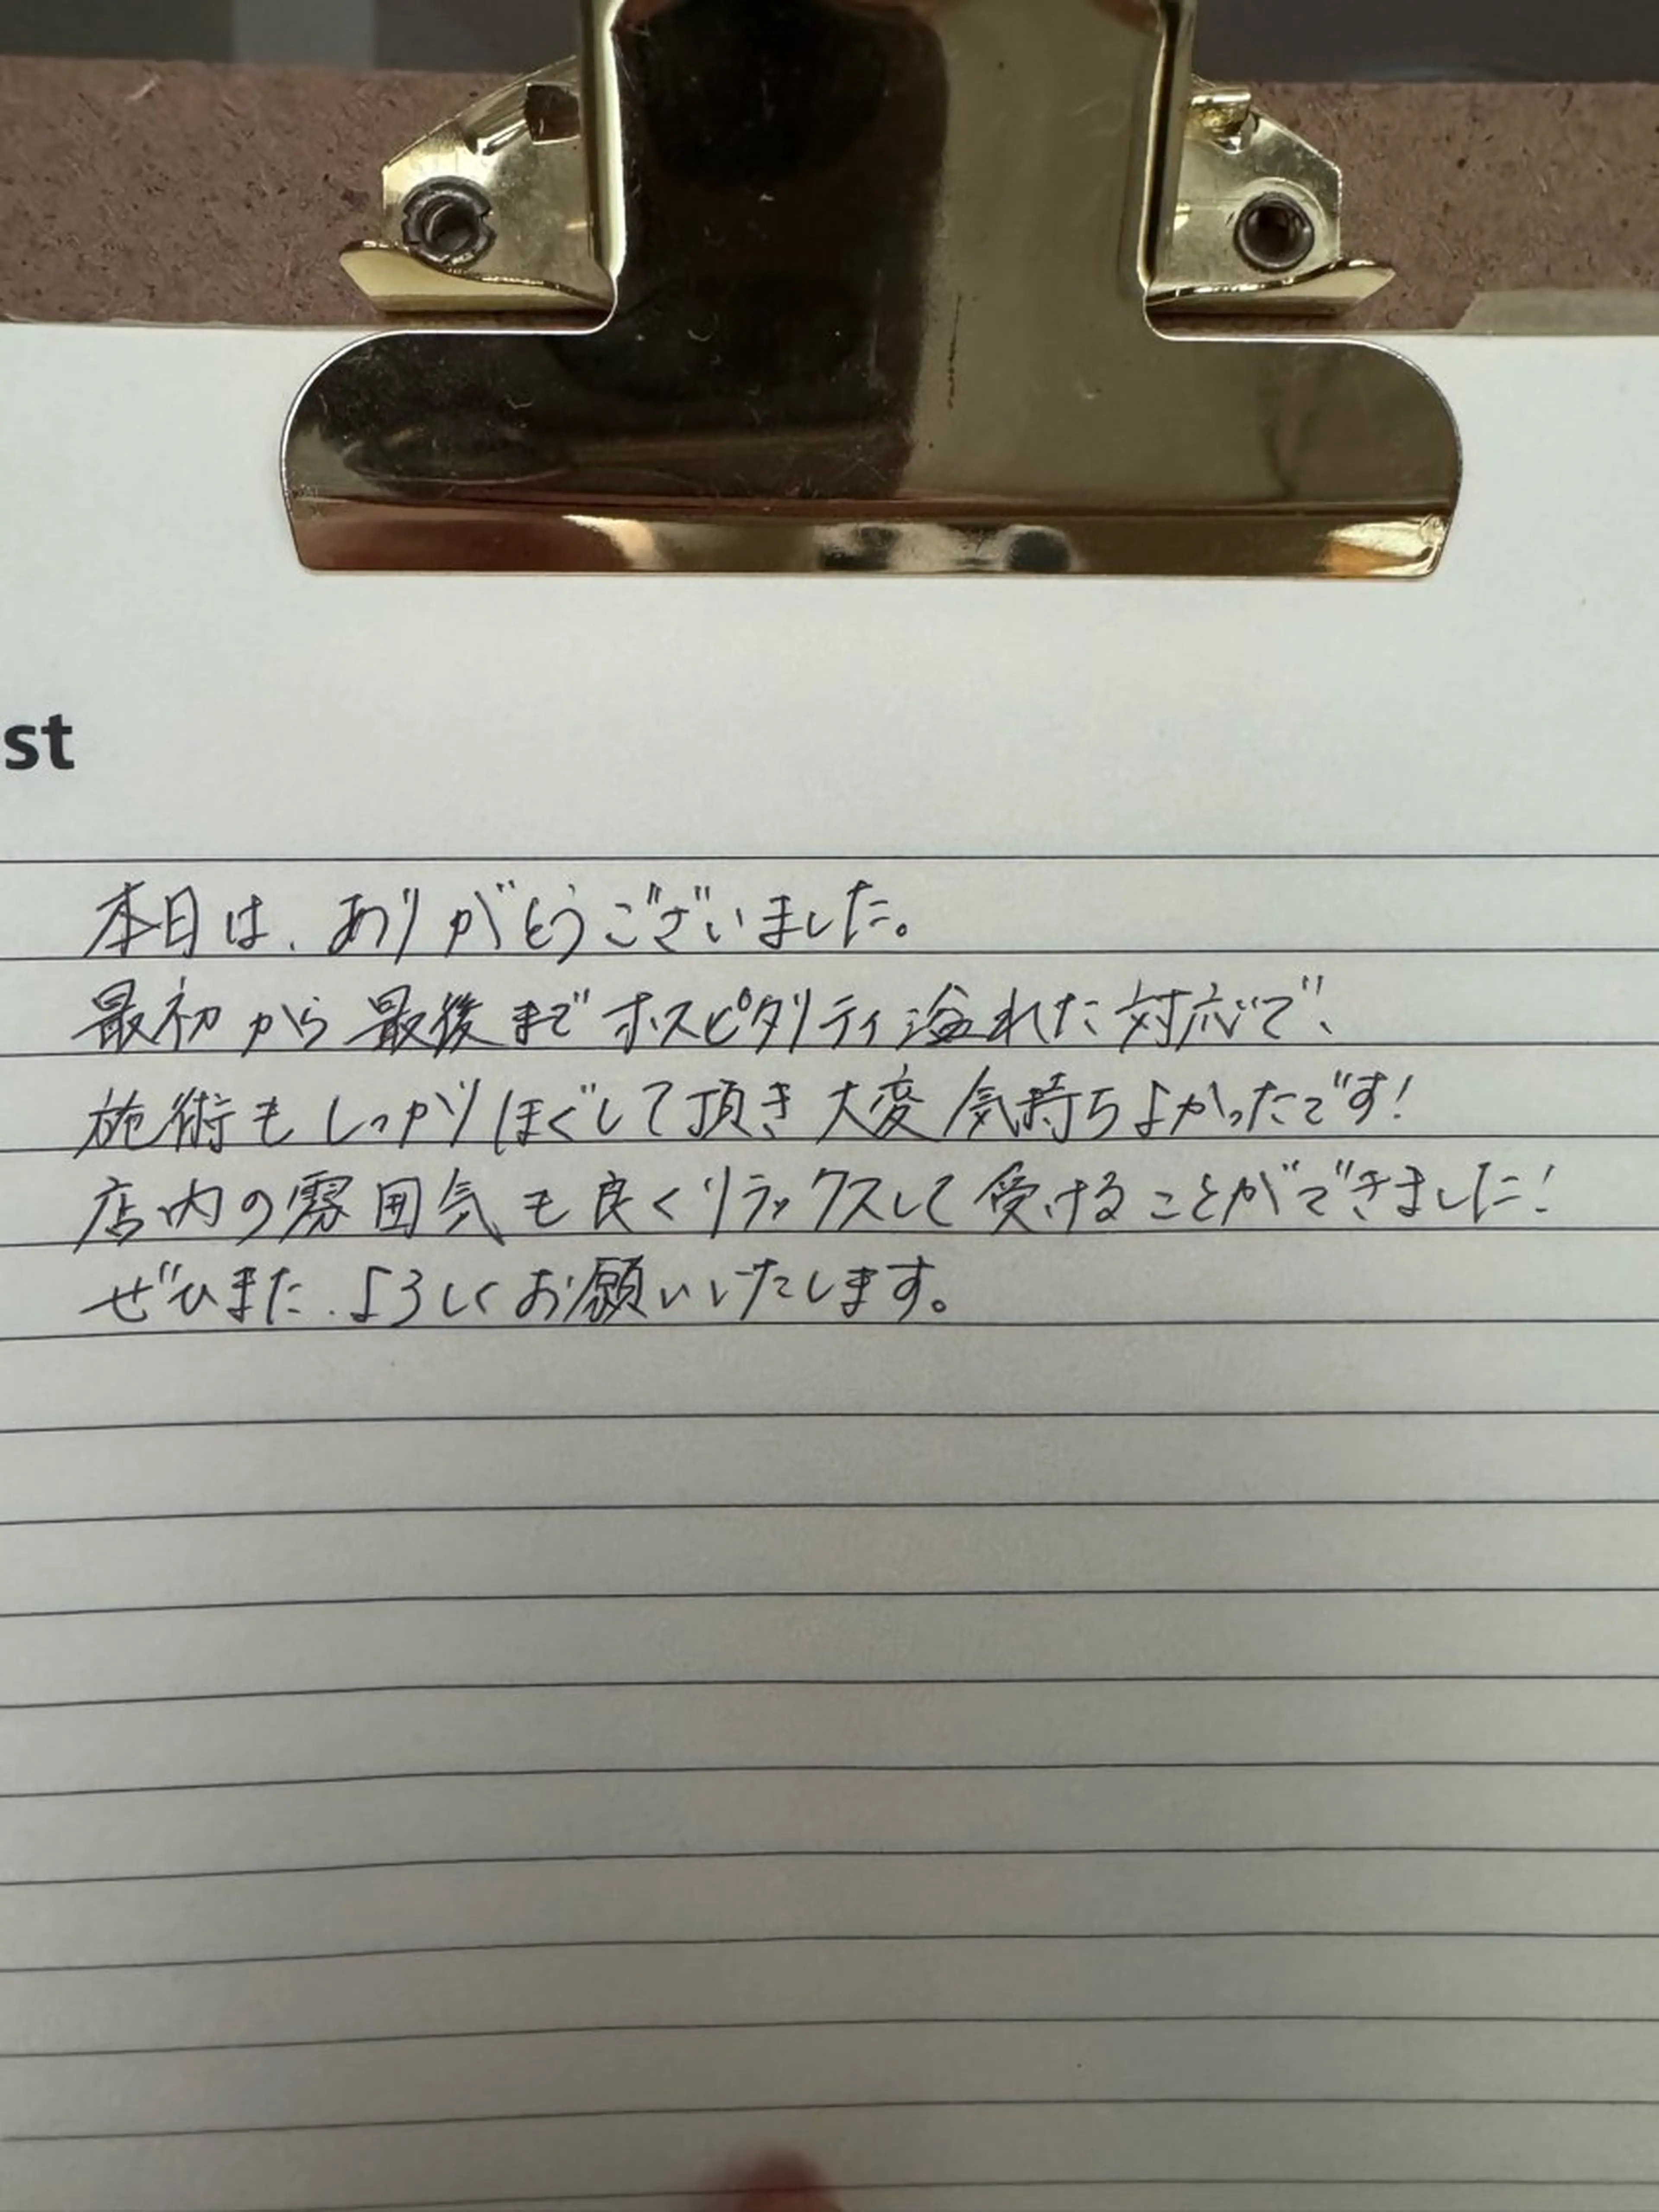 st
本日は、ありがとうございました。
最初から最後までホスピタリティ溢れた対応で、
施術もしっかりほぐして頂き大変気持ちよかったです!
店内の雰囲気も良くリラックスして受けることができました!
ぜひまた、よろしくお願いいたします。